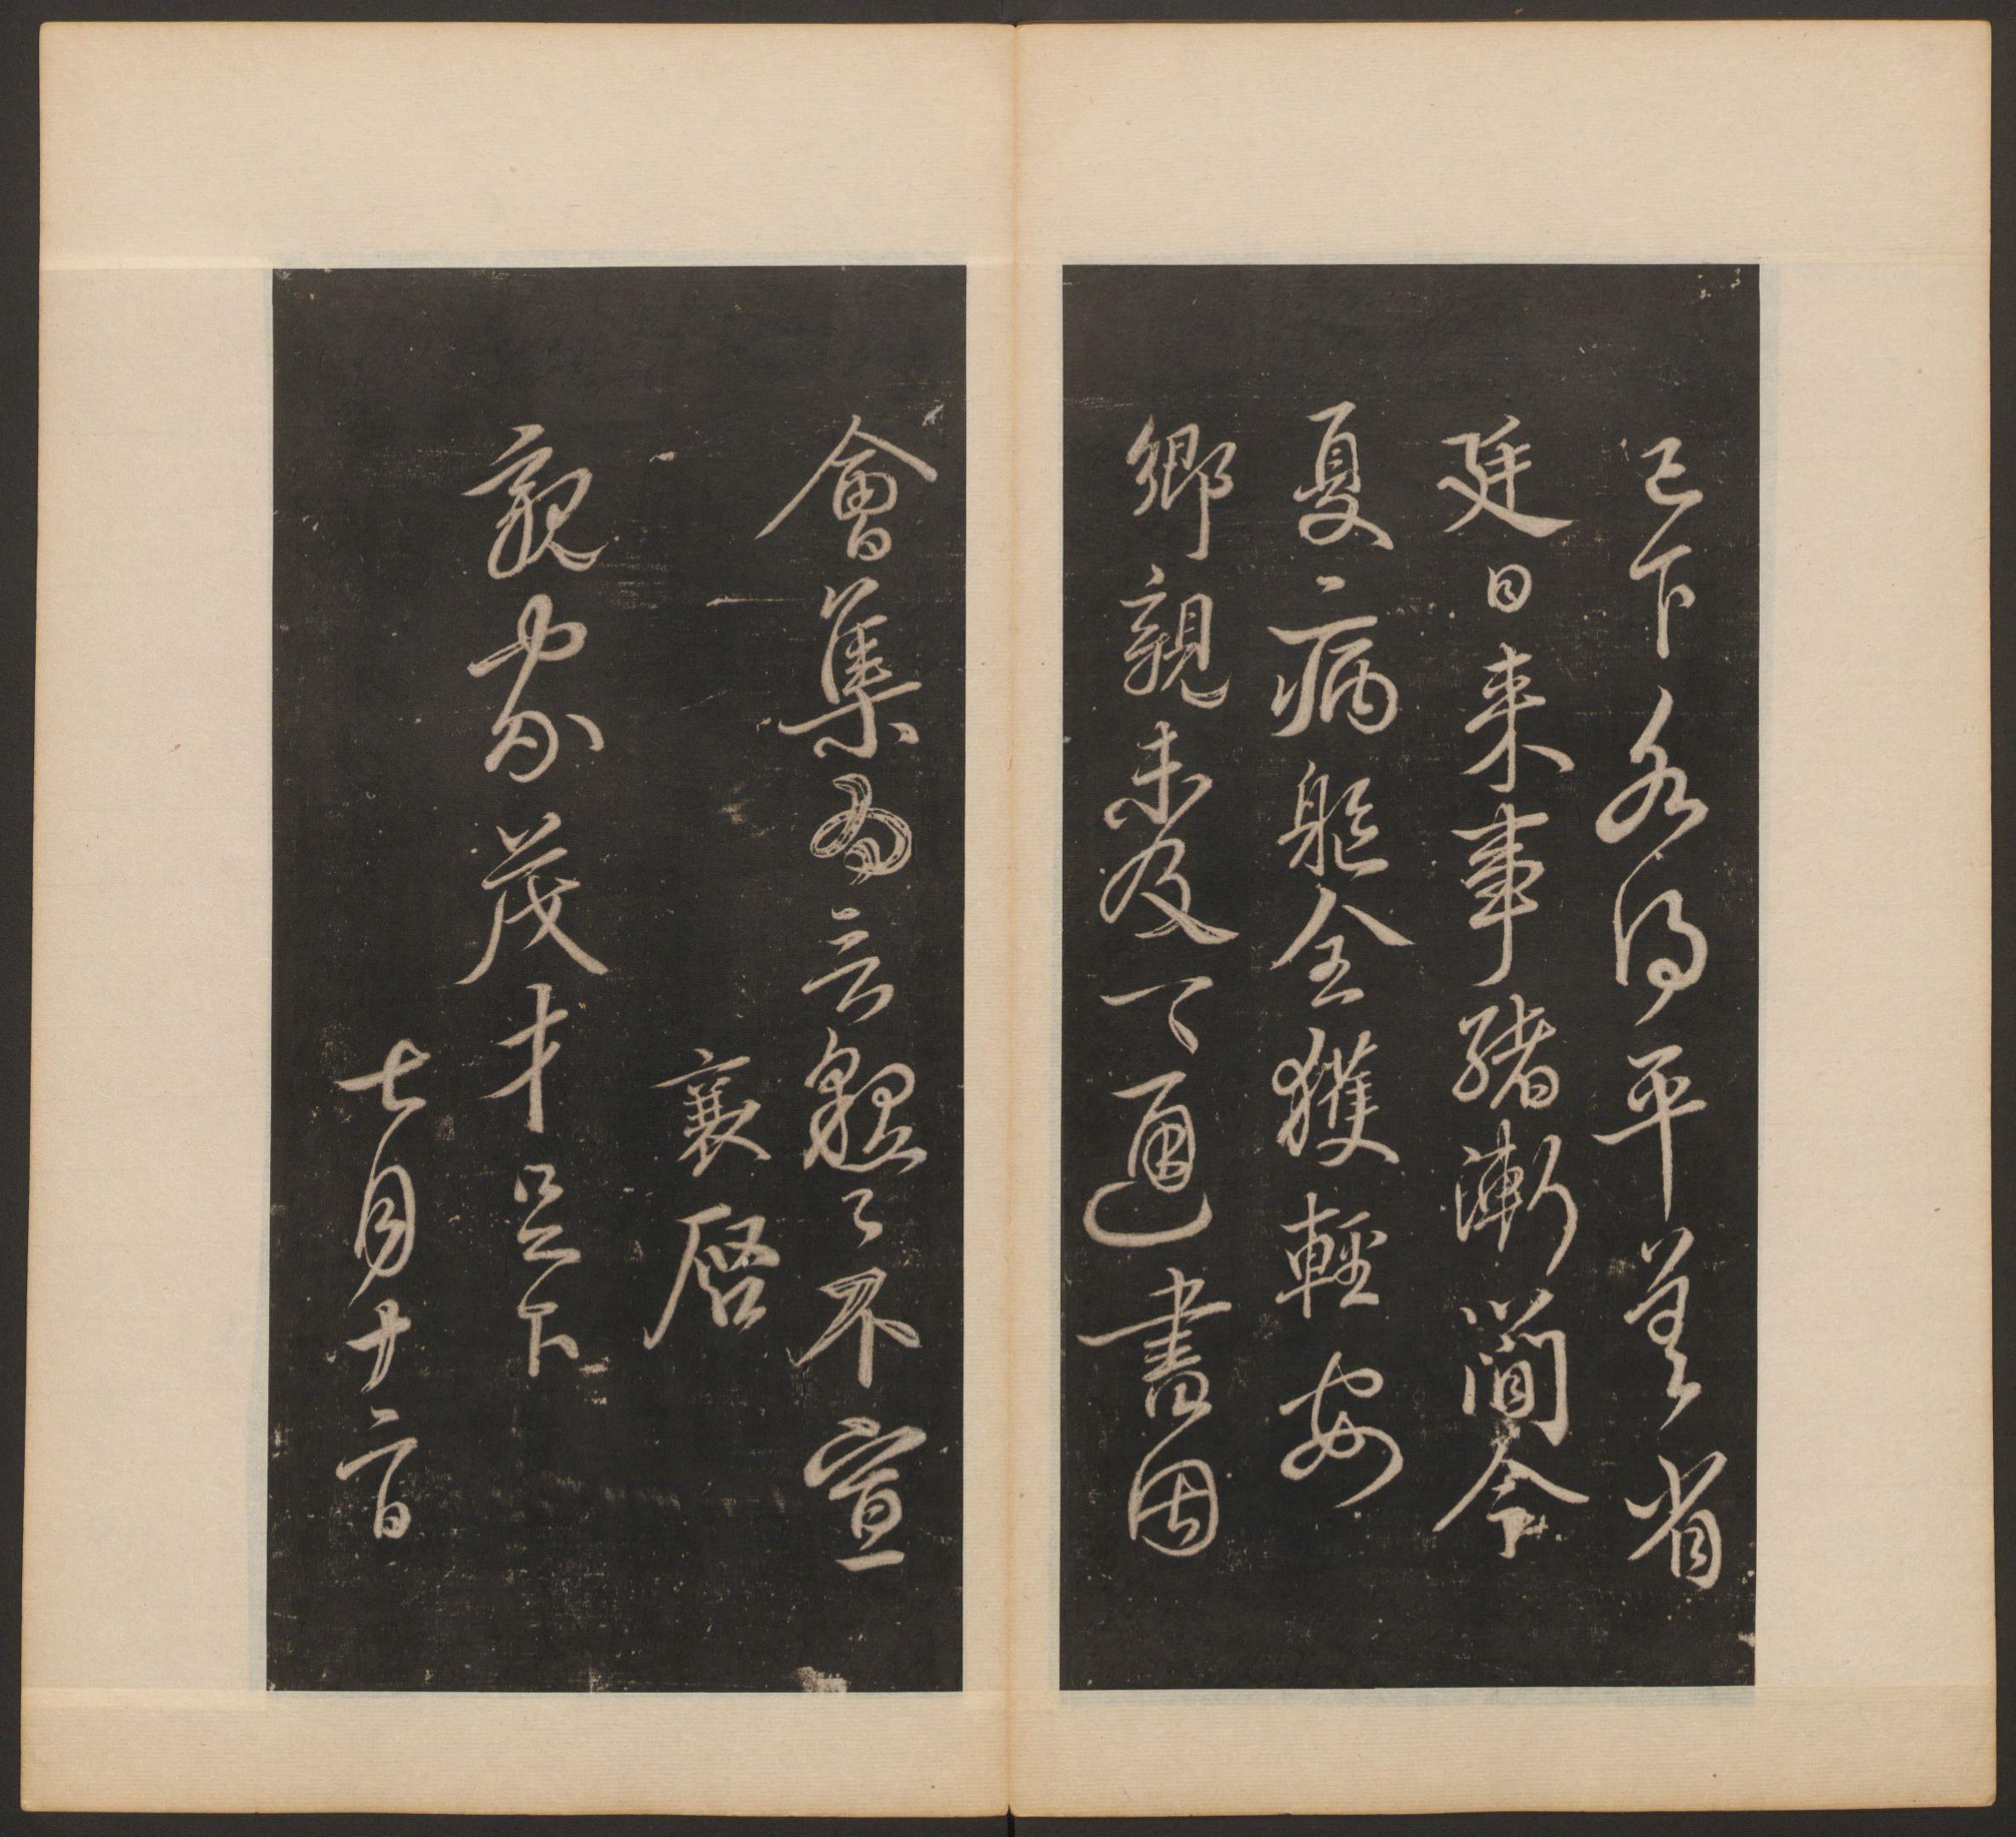 已下各得平善省
廷日来事緒漸簡今
夏病軀全獲輕安
鄉親未及一一通書因
會集為言懇懇不宣
襄啓
親家茂才足下
七月廿二日